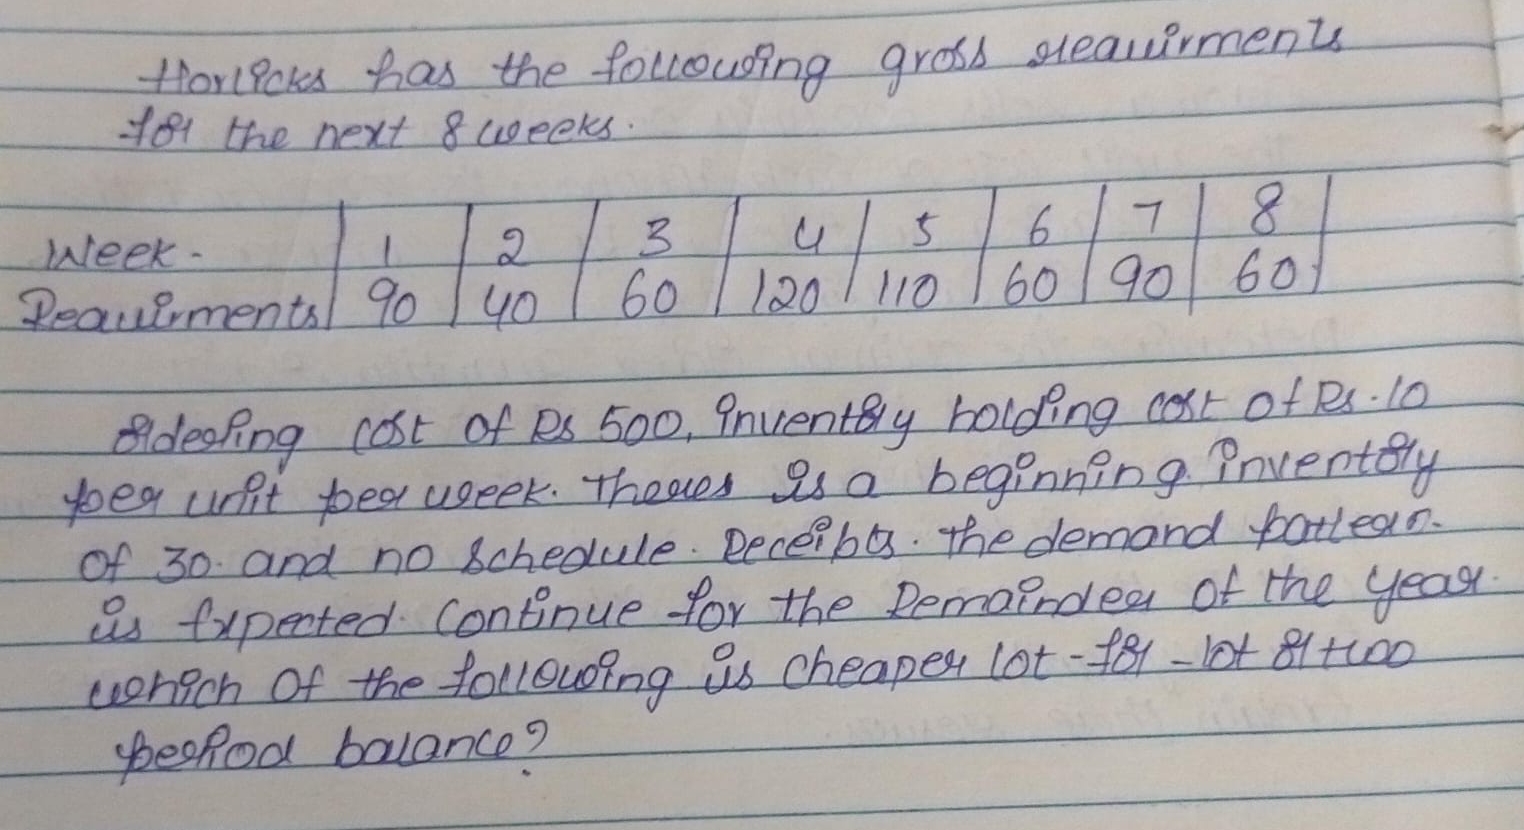 Horlicks has the following gross reauirments
for the next 8 weeks.
Week - 1 2 3 4 5 6 7 8
Reauirments 90 40 60 120 110 60 90 60
ordering cost of Rs 500, inventory holding cost of Rs. 10
per unit per week. There is a beginning inventory
of 30. and no schedule. Receibts. the demand patlern.
is Expected. Continue for the Remainder of the year.
which of the following is cheaper lot-for-lot or two
period balance?